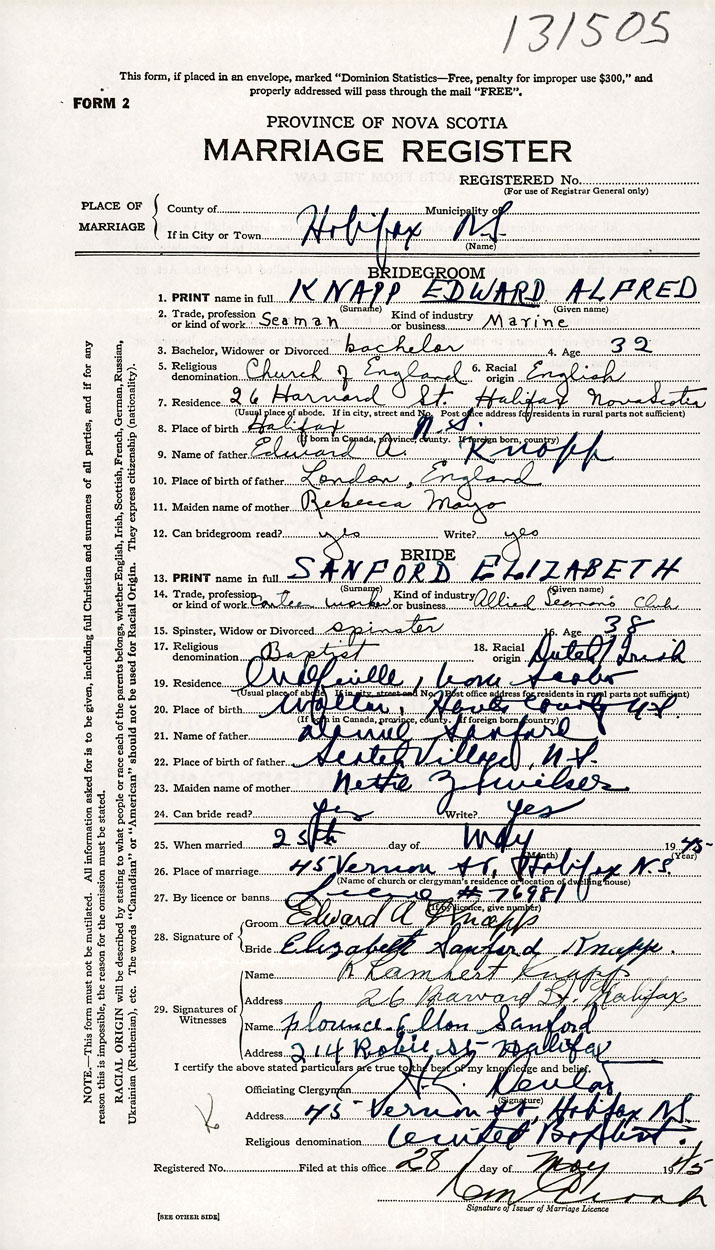 131505
This form, if placed in an envelope, marked "Dominion Statistics—Free, penalty for improper use $300," and
properly addressed will pass through the mail "FREE".
FORM 2
PROVINCE OF NOVA SCOTIA
MARRIAGE REGISTER
REGISTERED No.
(For use of Registrar General only)
PLACE OF MARRIAGE
County of Municipality of
If in City or Town Halifax N.S.
(Name)
BRIDEGROOM
1. PRINT name in full KNAPP EDWARD ALFRED
(Surname) (Given name)
2. Trade, profession or kind of work Seaman Kind of industry or business Marine
3. Bachelor, Widower or Divorced bachelor 4. Age 32
5. Religious denomination Church of England 6. Racial origin English
7. Residence 26 Harvard St. Halifax Nova Scotia
(Usual place of abode. If in city, street and No. Post office address for residents in rural parts not sufficient)
8. Place of birth Halifax N.S.
(If born in Canada, province, county. If foreign born, country)
9. Name of father Edward A. Knapp
10. Place of birth of father London, England
11. Maiden name of mother Rebecca Mayo
12. Can bridegroom read? yes Write? yes
BRIDE
13. PRINT name in full SANFORD ELIZABETH
(Surname) (Given name)
14. Trade, profession or kind of work Canteen worker Kind of industry or business Allied Seamans Club
15. Spinster, Widow or Divorced spinster 16. Age 38
17. Religious denomination Baptist 18. Racial origin Dutch Irish
19. Residence Wolfville, Nova Scotia
(Usual place of abode. If in city, street and No. Post office address for residents in rural parts not sufficient)
20. Place of birth Walton, Hants County N.S.
(If born in Canada, province, county. If foreign born, country)
21. Name of father Sanford
22. Place of birth of father Scotch Village, N.S.
23. Maiden name of mother Nettie
24. Can bride read? Yes Write? Yes
25. When married 25th day of May 1945
(Month) (Year)
26. Place of marriage 45 Vernon St, Halifax N.S.
(Name of church or clergyman's residence or location of dwelling house)
27. By licence or banns License #76981
(If by licence, give number)
28. Signature of
Groom Edward A Knapp
Bride Elizabeth Sanford Knapp.
29. Signatures of Witnesses
Name R Lambert Knapp
Address 26 Harvard St. Halifax
Name Florence Elton Sanford
Address 214 Robie St- Halifax
I certify the above stated particulars are true to the best of my knowledge and belief.
Officiating Clergyman
(Signature)
Address 45 Vernon St, Halifax N.S.
Religious denomination United Baptist.
Registered No. Filed at this office 28 day of May 1945
Signature of Issuer of Marriage Licence
[SEE OTHER SIDE]
NOTE.—This form must not be mutilated. All information asked for is to be given, including full Christian and surnames of all parties, and if for any
reason this is impossible, the reason for the omission must be stated.
RACIAL ORIGIN will be described by stating to what people or race each of the parents belongs, whether English, Irish, Scottish, French, German, Russian,
Ukrainian (Ruthenian), etc. The words "Canadian" or "American" should not be used for Racial Origin. They express citizenship (nationality).